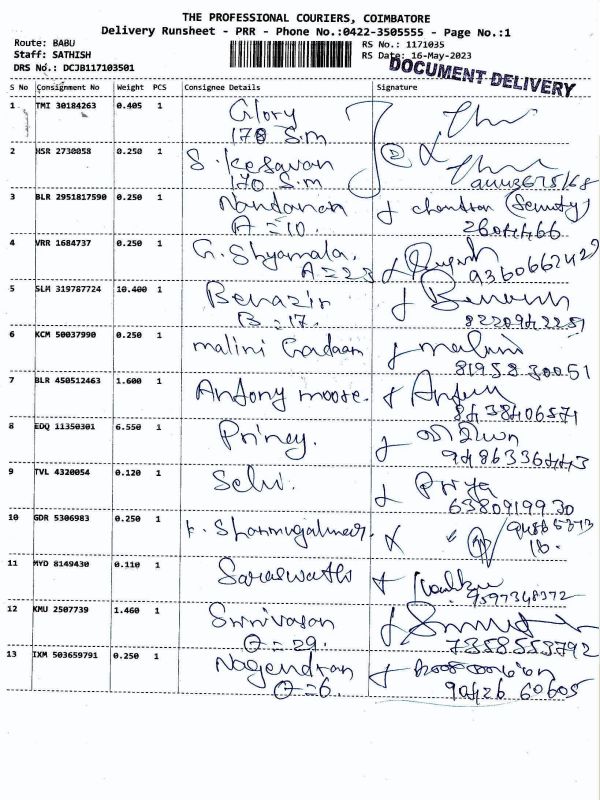 THE PROFESSIONAL COURIERS, COIMBATORE
Delivery Runsheet - PRR - Phone No.:0422-3505555 - Page No.:1
Route: BABU
Staff: SATHISH
DRS No.: DCJB117103501
RS No.: 1171035
RS Date: 16-May-2023
DOCUMENT DELIVERY
S No Consignment No Weight PCS Consignee Details Signature
1 TMI 30184263 0.405 1 Glory
170 S.m
2 HSR 2730058 0.250 1 S. Kesavan
170 S.m
3 BLR 2951817590 0.250 1 Nandanan chandran (Security)
A = 10. 2604466
4 VRR 1684737 0.250 1 G. Shyamala.
A = 23 9360662429
5 SLM 319787724 10.400 1 Benazir
B = 17. 8220942251
6 KCM 50037990 0.250 1 malini malini
81958 30051
7 BLR 450512463 1.600 1 Antony moore.
8438406571
8 EDQ 11350301 6.550 1 Princy.
9486336443
9 TVL 4320054 0.120 1 Selvi. Priya
6380919930
10 GDR 5306983 0.250 1
11 MYD 8149430 0.110 1 Saraswathi
9597348372
12 KMU 2507739 1.460 1 Srinivasan
O = 29. 7358553792
13 IXM 503659791 0.250 1 Nagendran
O = 6. 90426 60605